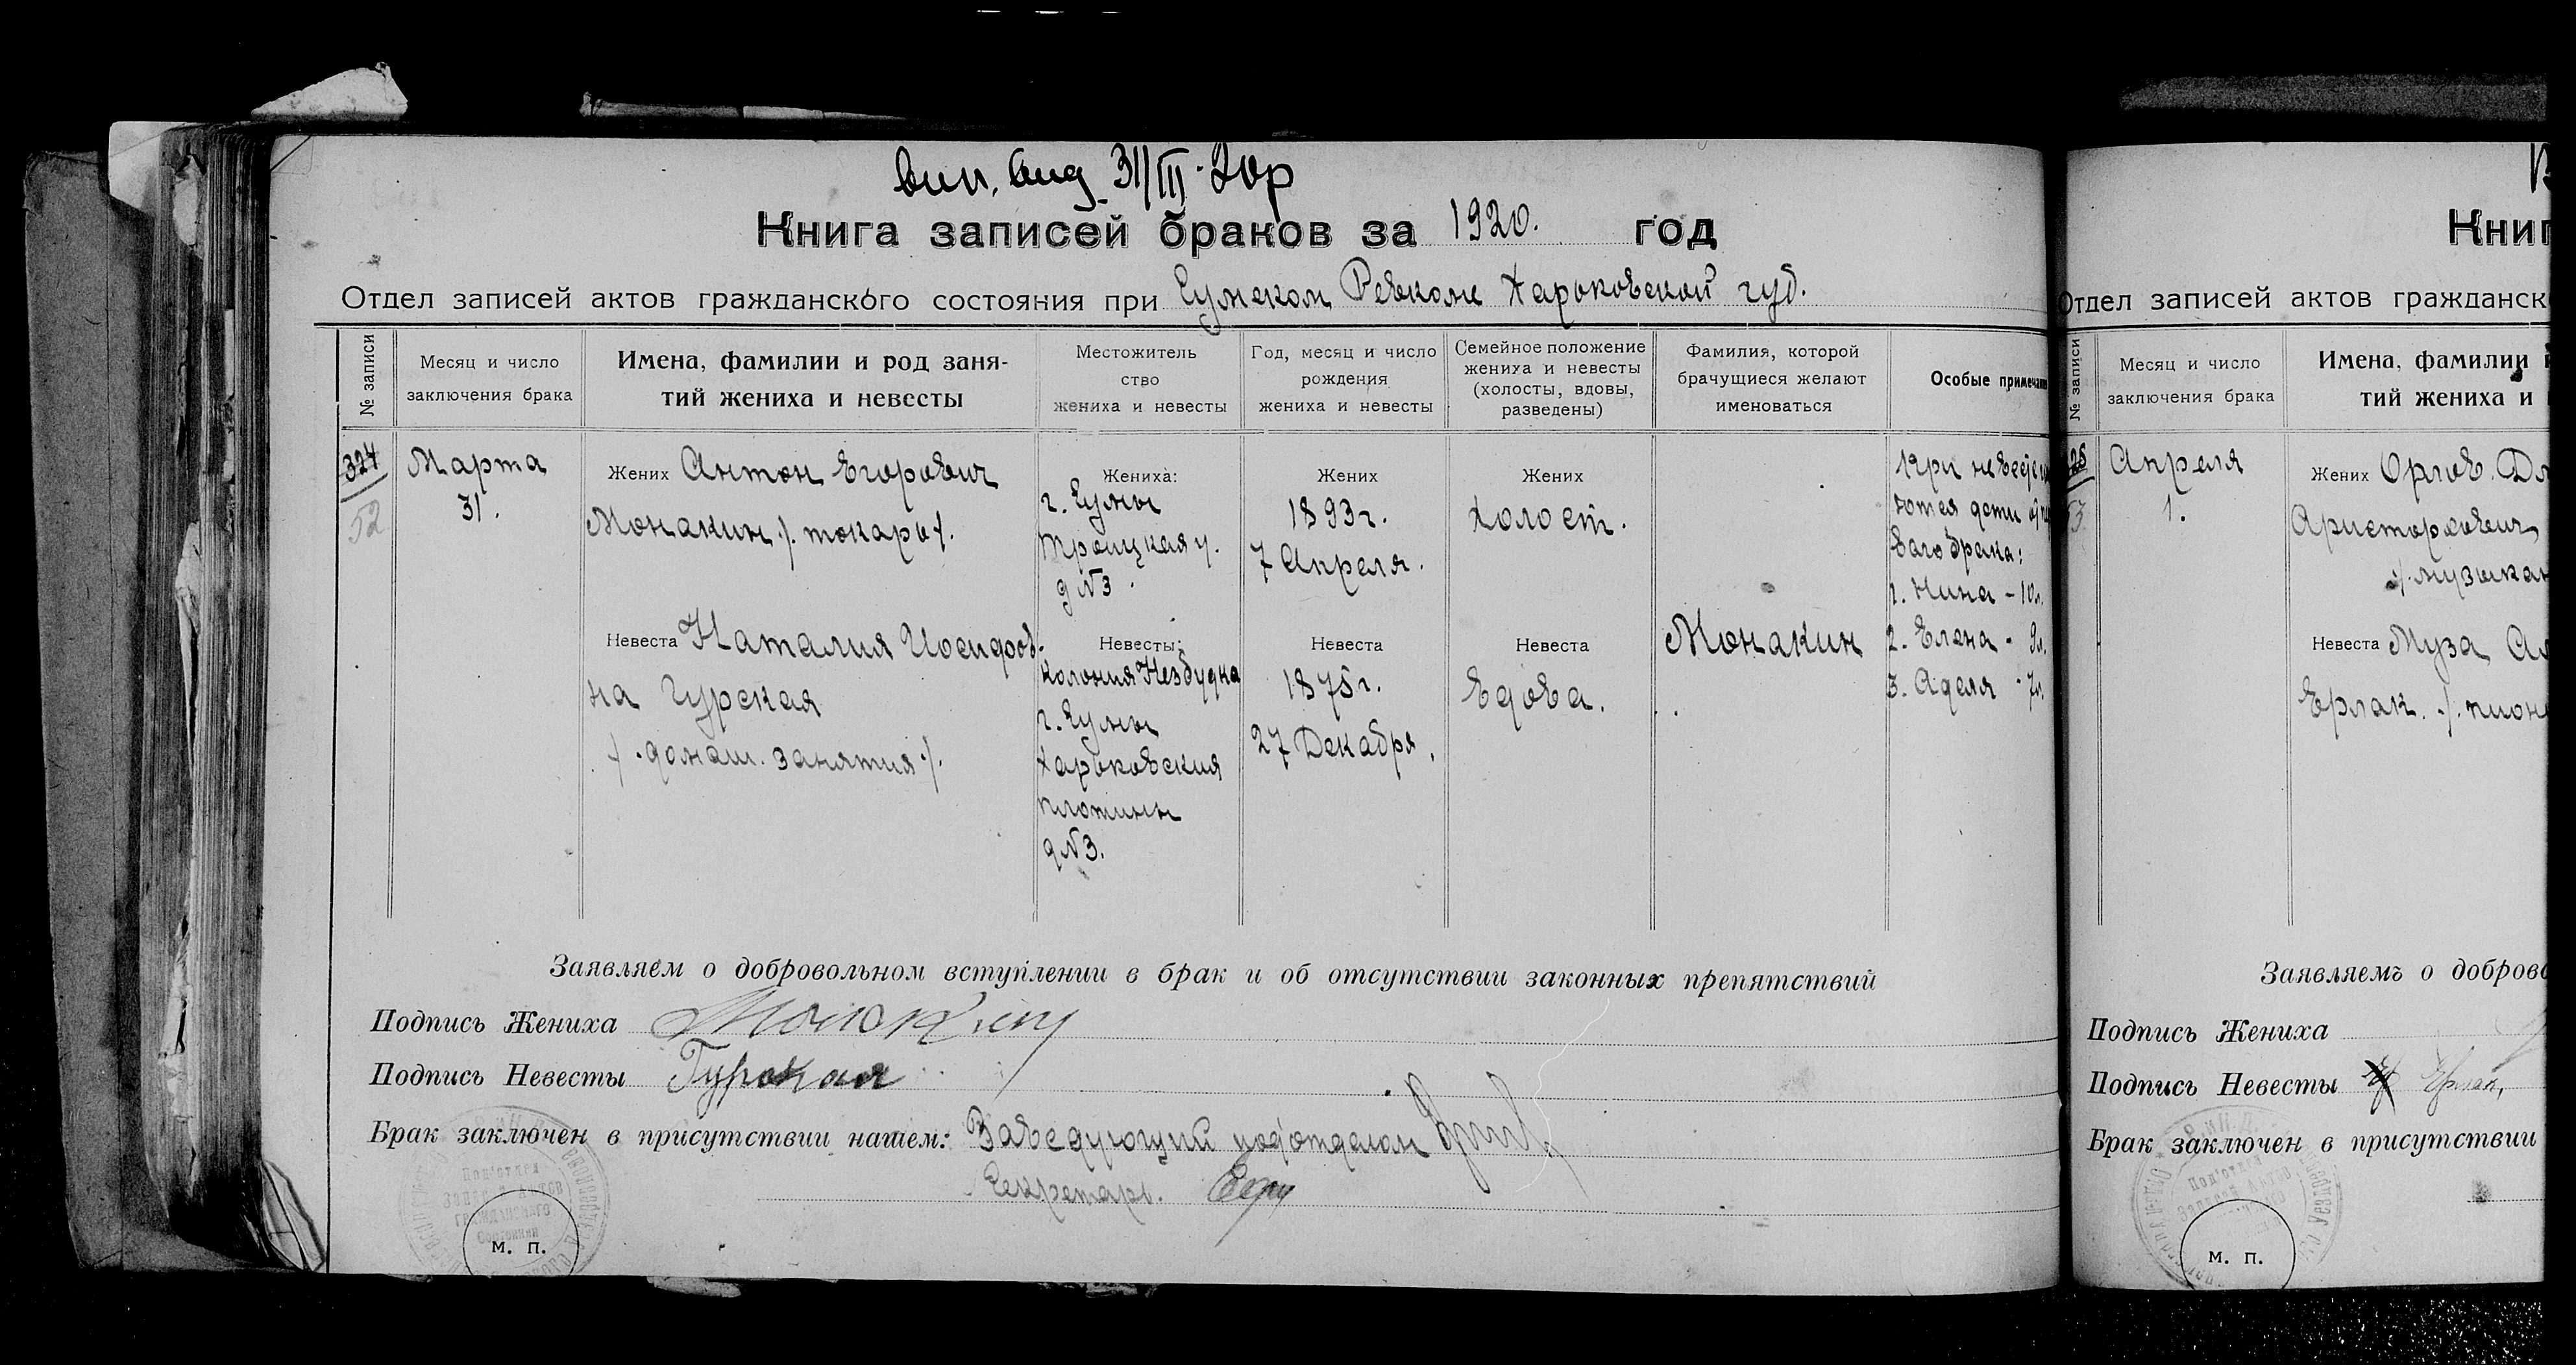 31/III-20г
Книга записей браков за 1920. год
Отдел записей актов гражданского состояния при Сумском Ревкоме Харьковской губ.
№ записи
Месяц и число
заключения брака
Имена, фамилии и род заня-
тий жениха и невесты
Местожитель
ство
жениха и невесты
Год, месяц и число
рождения
жениха и невесты
Семейное положение
жениха и невесты
(холосты, вдовы,
разведены)
Фамилия, которой
брачущиеся желают
именоваться
Особые примечани
324
52
Марта
31.
Жених Антон Егорович
Монакин /. токарь /.
Невеста Наталия Иосифов-
на Гурская
/. домаш. занятия ./.
Жениха:
г. Сумы
Троицкая у.
д № 3.
Невесты:
колония Незбудка
г. Сумы
Харьковския
плотины
д № 3.
Жених
1893 г.
7 Апреля.
Невеста
1875 г.
27 Декабря.
Жених
холост.
Невеста
вдова.
Монакин
При невесте
ются дети
ваго брака:
1. Нина - 10 л.
2. Елена - 9 л.
3. Аделя - 7 л.
Заявляем о добровольном вступлении в брак и об отсутствии законных препятствий
Подпись Жениха Монокин
Подпись Невесты Гурская
Брак заключен в присутствии нашем: Заведующий подотделом
Секретарь.
м. п.
Книг
Отдел записей актов гражданск
№ записи
Месяц и число
заключения брака
Имена, фамилии
тий жениха и
Апреля
1.
Жених Орлов
Аристархович
/. музыкан
Невеста Муза
Ерлак. /.
Заявляемъ о доброво
Подпись Жениха
Подпись Невесты Ерлак,
Брак заключен в присутствии
м. п.